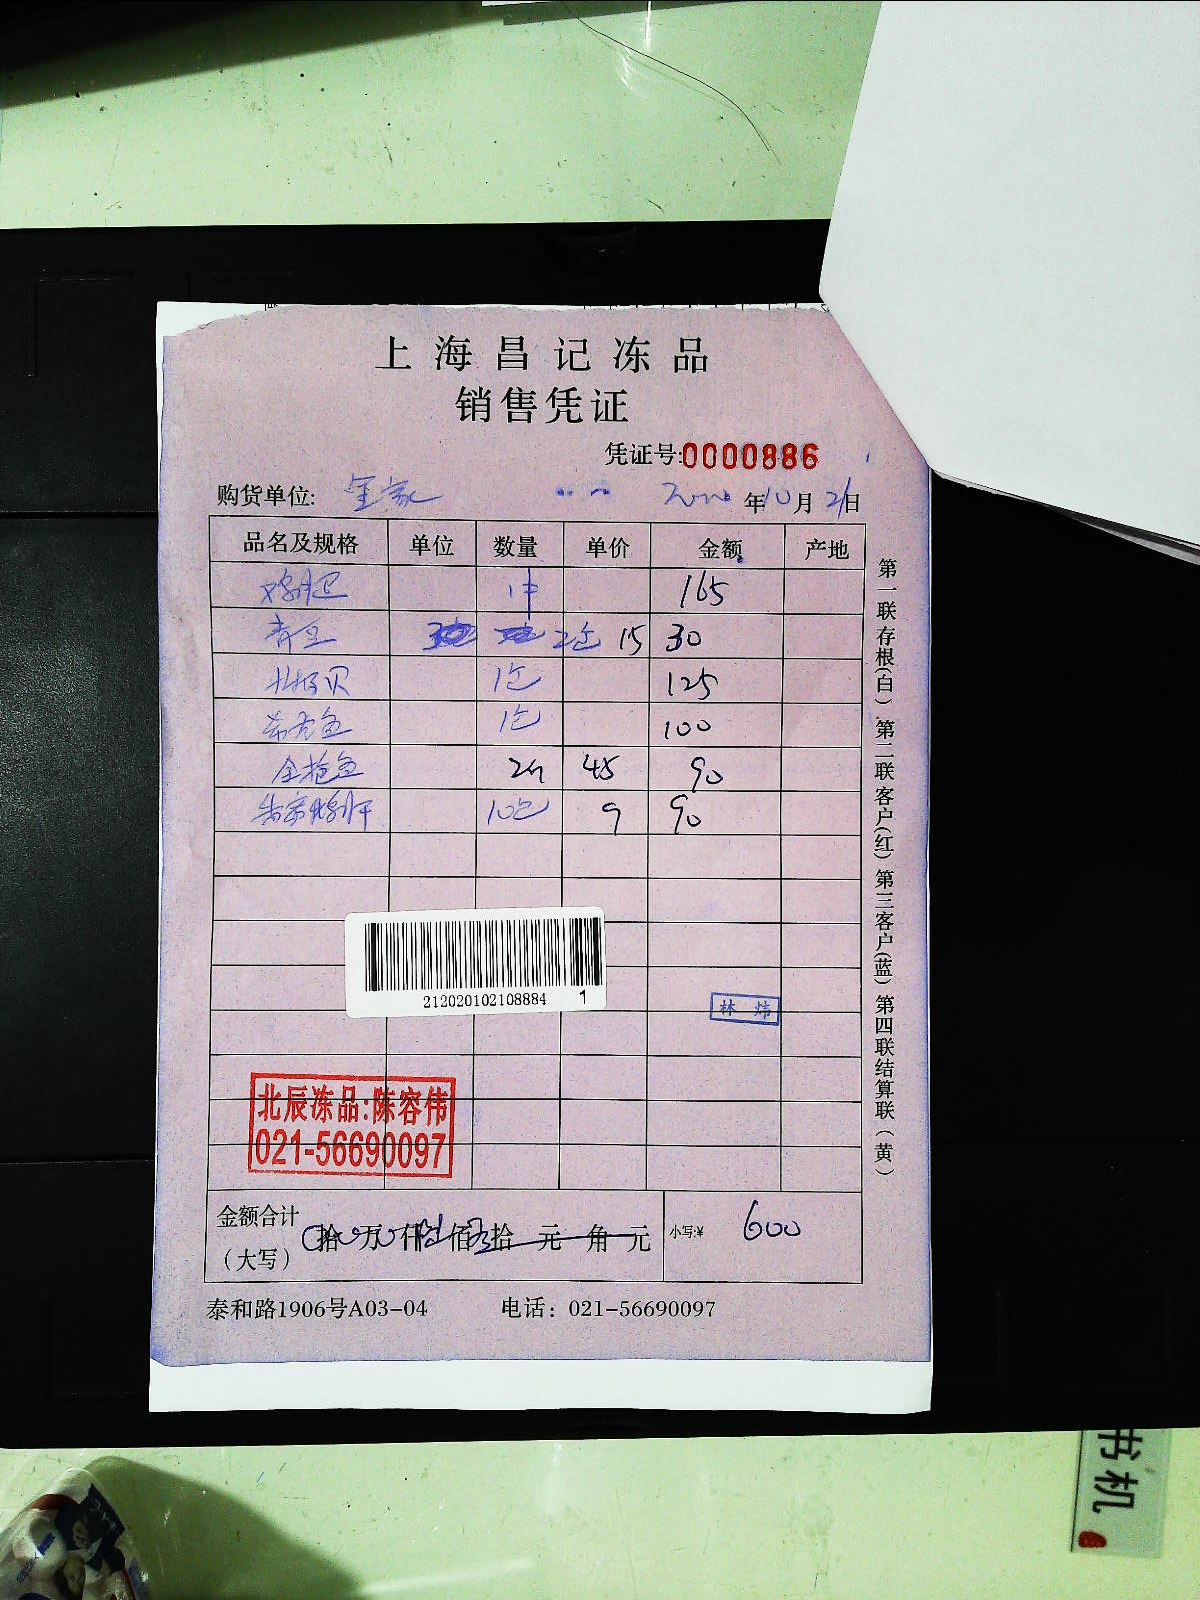 上海昌记冻品
销售凭证
凭证号:0000886
购货单位: 年10月21日
品名及规格 单位 数量 单价 金额 产地
1件 165
青豆 2包 15 30
北极贝 1包 125
希令鱼 1包 100
金枪鱼 2 45 90
10包 9 90
212020102108884 1
林 炜
北辰冻品:陈容伟
021-56690097
金额合计
(大写) 拾 万 仟 陆 佰 拾 元 角 元 小写:¥ 600
泰和路1906号A03-04 电话: 021-56690097
第一联存根(白) 第二联客户(红) 第三客户(蓝) 第四联结算联(黄)
书机